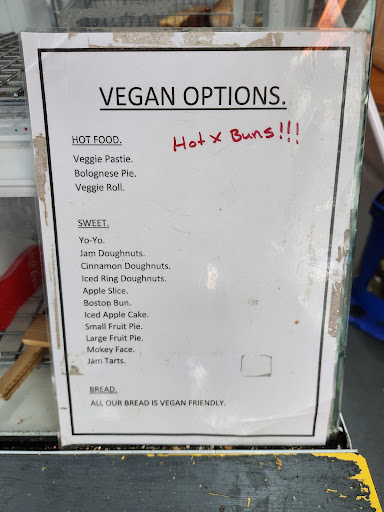 VEGAN OPTIONS.
HOT FOOD.
Hot x Buns!!!
Veggie Pastie.
Bolognese Pie.
Veggie Roll.
SWEET.
Yo-Yo.
Jam Doughnuts.
Cinnamon Doughnuts.
Iced Ring Doughnuts.
Apple Slice.
Boston Bun.
Iced Apple Cake.
Small Fruit Pie.
Large Fruit Pie.
Mokey Face.
Jam Tarts.
BREAD.
ALL OUR BREAD IS VEGAN FRIENDLY.